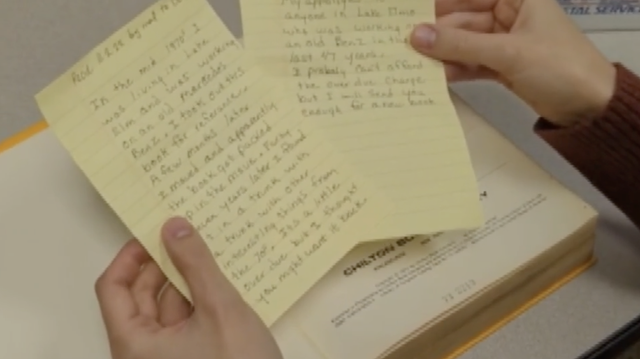 Rcd 2.8.22 by mail to
In the mid 1970's I
was living in Lake
Elmo and was working
on an old Mercedes
Benz. I took out this
book for reference.
A few months later
I moved and apparently
the book got packed
up in the move. Forty
seven years later I found
it in a trunk with
a trunk with other
interesting things from
the 70s. It's a little
over due but I thought
you might want it back.
My apologies
anyone in Lake Elmo
who was working on
an old Benz in the
last 47 years.
I probably can't afford
the over due charge
but I will send you
enough for a new book
CHILTON
POSTAL SERVICE